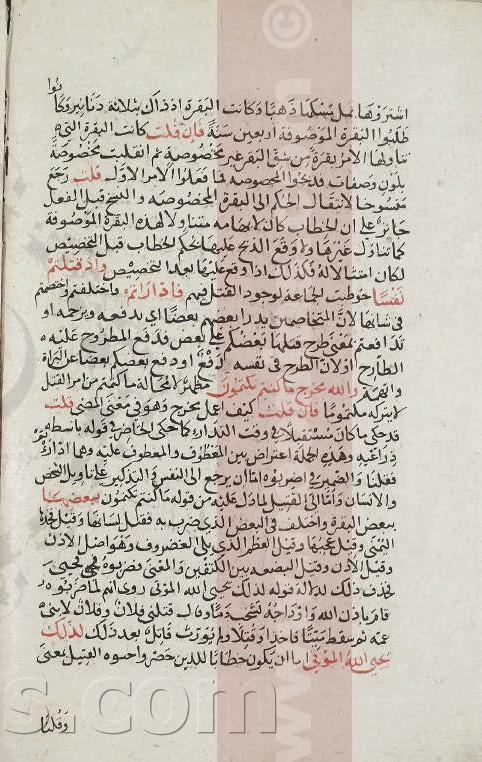 اشتروها بملء مسكها ذهبا وكانت البقرة اذ ذاك بثلاثة دنانير وكانوا
طلبوا البقرة الموصوفة اربعين سنة فان قلت كانت البقرة التى
تناولها الامر بقرة من شق البقر غير مخصوصة ثم انقلبت مخصوصة
بلون وصفات فذبحوا المخصوصة فما فعل الامر الاول قلت رجع
منسوخا لانتقال الحكم الى البقرة المخصوصة والنسخ قبل الفعل
جائز على ان الخطاب كان لابهامه متناولا لهذه البقرة الموصوفة
كما تناول غيرها ولو وقع الذبح عليها بحكم الخطاب قبل التخصيص
لكان امتثالا له فكذلك اذا وقع عليها بعد التخصيص واذ قتلتم
نفسا خوطبت الجماعة لوجود القتل فيهم فادارأتم فاختلفتم واختصمتم
فى شانها لان المتخاصمين يدرأ بعضهم بعضا اى يدفعه ويزحمه او
تدافعتم بمعنى طرح قتلها بعضكم على بعض فدفع المطروح عليه
الطارح او لان الطرح فى نفسه دفع او دفع بعضكم بعضا عن البراءة
واتهمه والله مخرج ما كنتم تكتمون مظهر لا محالة ما كتمتم من امر القتل
لا يتركه مكتوما فان قلت كيف اعمل مخرج وهو فى معنى المضى قلت
قد حكى ما كان مستقبلا فى وقت التدارء كما حكى الحاضر فى قوله باسط
ذراعيه وهذه الجملة اعتراض بين المعطوف والمعطوف عليه وهما ادارأتم
فقلنا والضمير فى اضربوه اما ان يرجع الى النفس والتذكير على تاويل الشخص
والانسان واما الى القتيل لما دل عليه من قوله ما كنتم تكتمون ببعضها
ببعض البقرة واختلف فى البعض الذى ضرب به فقيل لسانها وقيل فخذها
اليمنى وقيل عجبها وقيل العظم الذى يلى الغضروف وهو اصل الاذن
وقيل الاذن وقيل البضعة بين الكتفين والمعنى فضربوه فحيى
فحذف ذلك لدلالة قوله كذلك يحيى الله الموتى روى انهم لما ضربوه
قام باذن الله واوداجه تشخب دما وقال قتلنى فلان وفلان لابنى
عمه ثم سقط ميتا فاخذا وقتلا ولم يورث قاتل بعد ذلك كذلك
يحيى الله الموتى اما ان يكون خطابا للذين حضروا حيوة القتيل بمعنى
وقلنا
s.com